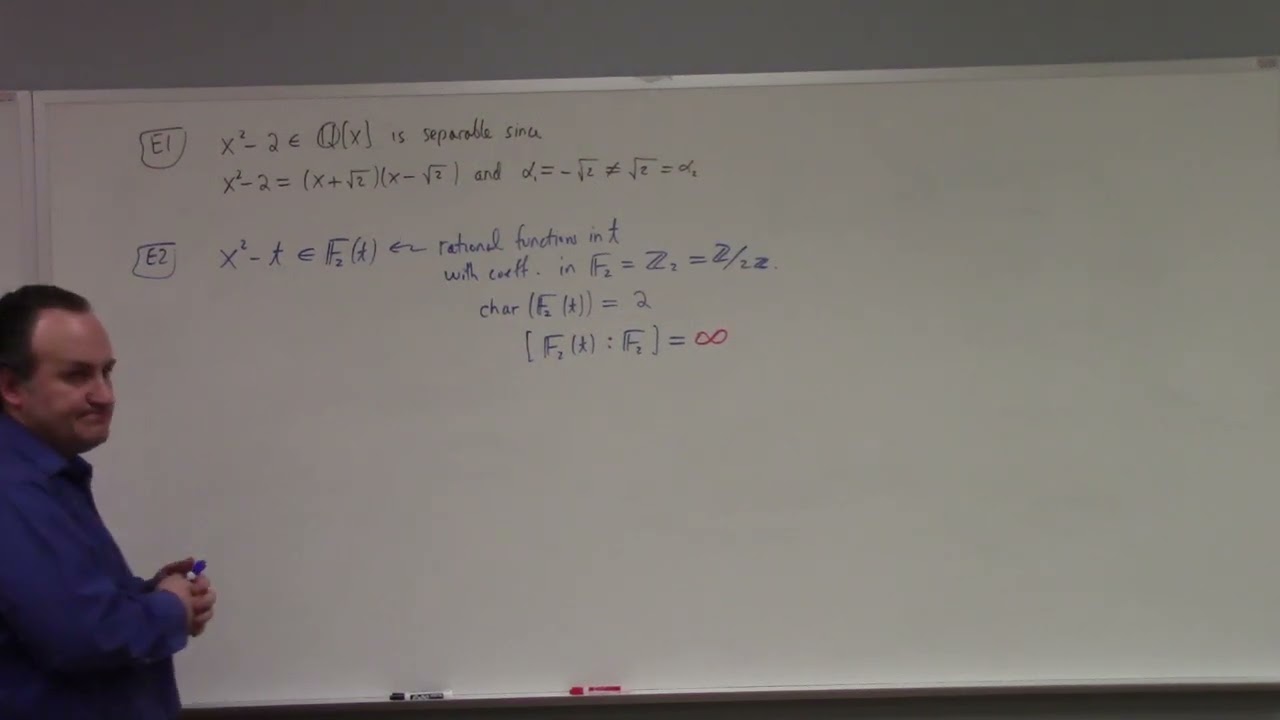 E1 x² - 2 ∈ ℚ[x] is separable since
x² - 2 = (x + √2)(x - √2) and α₁ = -√2 ≠ √2 = α₂
E2 x² - t ∈ 𝔽₂(t) ← rational functions in t
with coeff. in 𝔽₂ = ℤ₂ = ℤ/2ℤ.
char (𝔽₂(t)) = 2
[𝔽₂(t) : 𝔽₂] = ∞